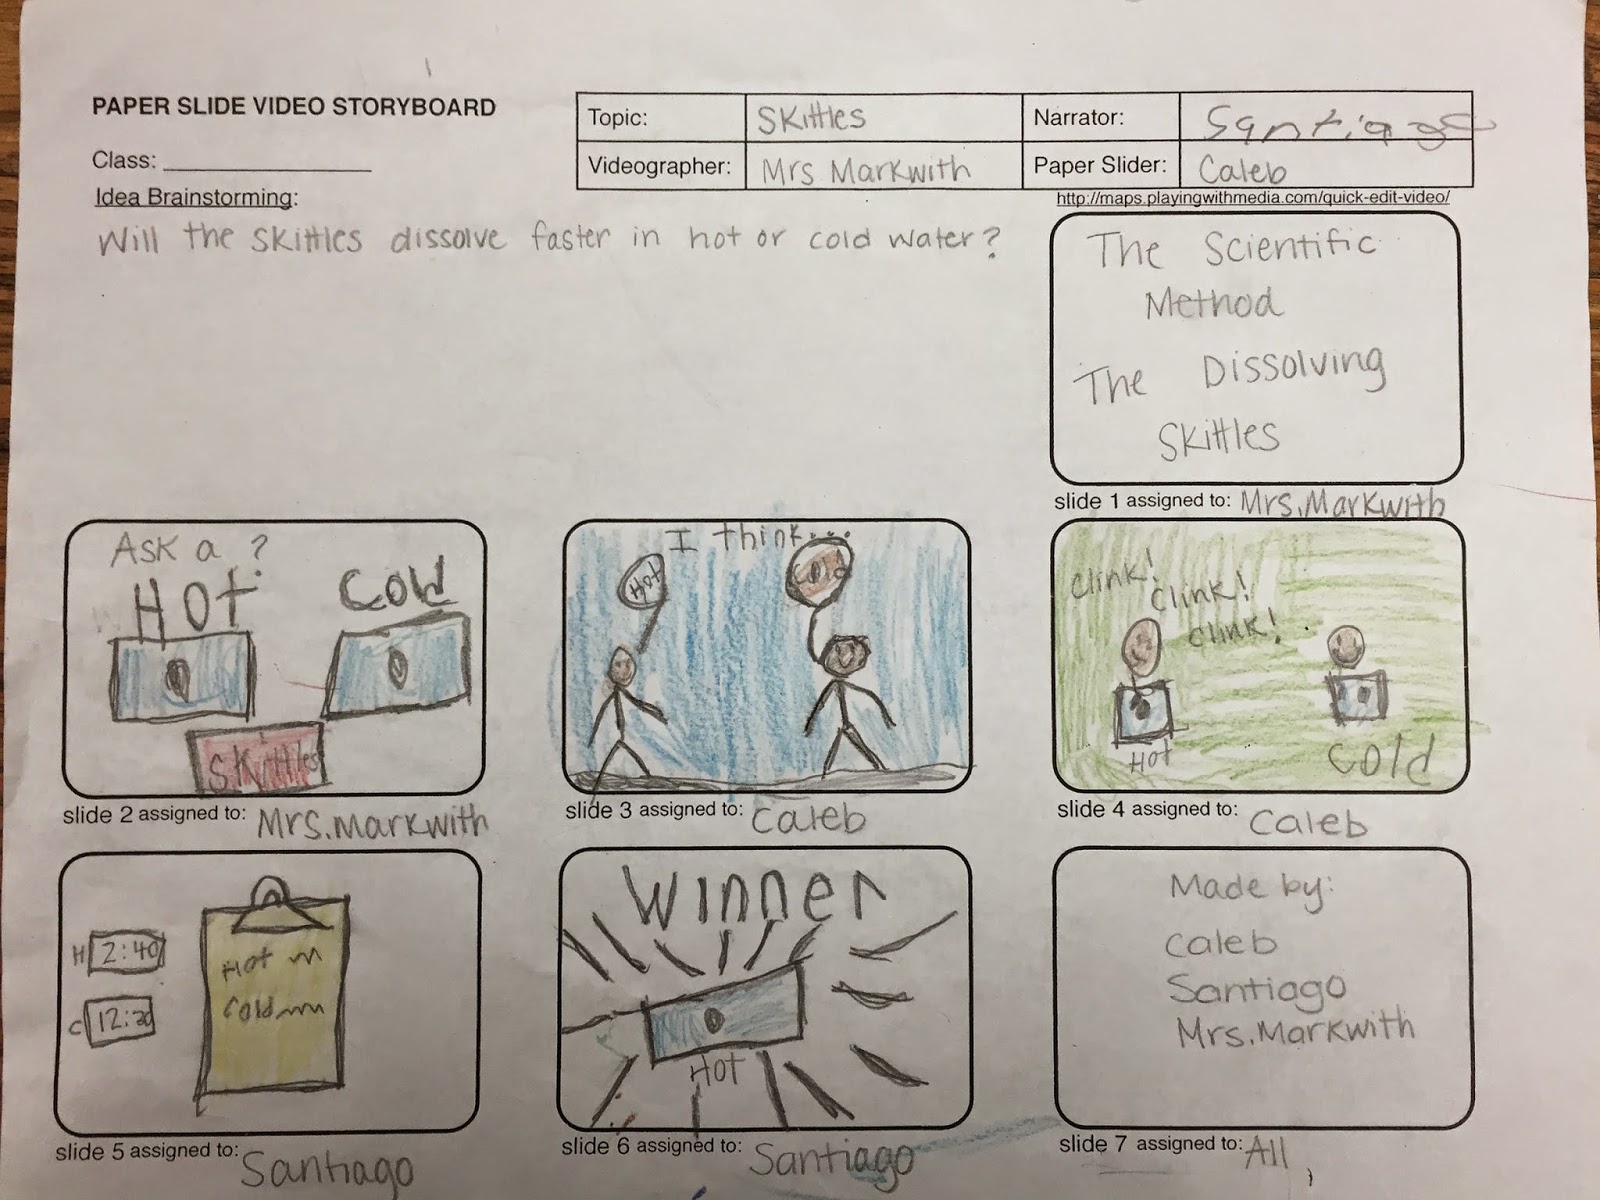 PAPER SLIDE VIDEO STORYBOARD
Topic: Skittles Narrator: Santiago
Class:
Videographer: Mrs Markwith Paper Slider: Caleb
Idea Brainstorming:
http://maps.playingwithmedia.com/quick-edit-video/
Will the skittles dissolve faster in hot or cold water?
The Scientific
Method
The Dissolving
Skittles
slide 1 assigned to: Mrs. Markwith
Ask a ?
Hot Cold
Skittles
slide 2 assigned to: Mrs. Markwith
I think...
Hot Cold
slide 3 assigned to: Caleb
Clink!
Clink!
Clink!
Hot Cold
slide 4 assigned to: Caleb
H 2:40
C 12:30
Hot
Cold
slide 5 assigned to: Santiago
Winner
Hot
slide 6 assigned to: Santiago
Made by:
Caleb
Santiago
Mrs. Markwith
slide 7 assigned to: All